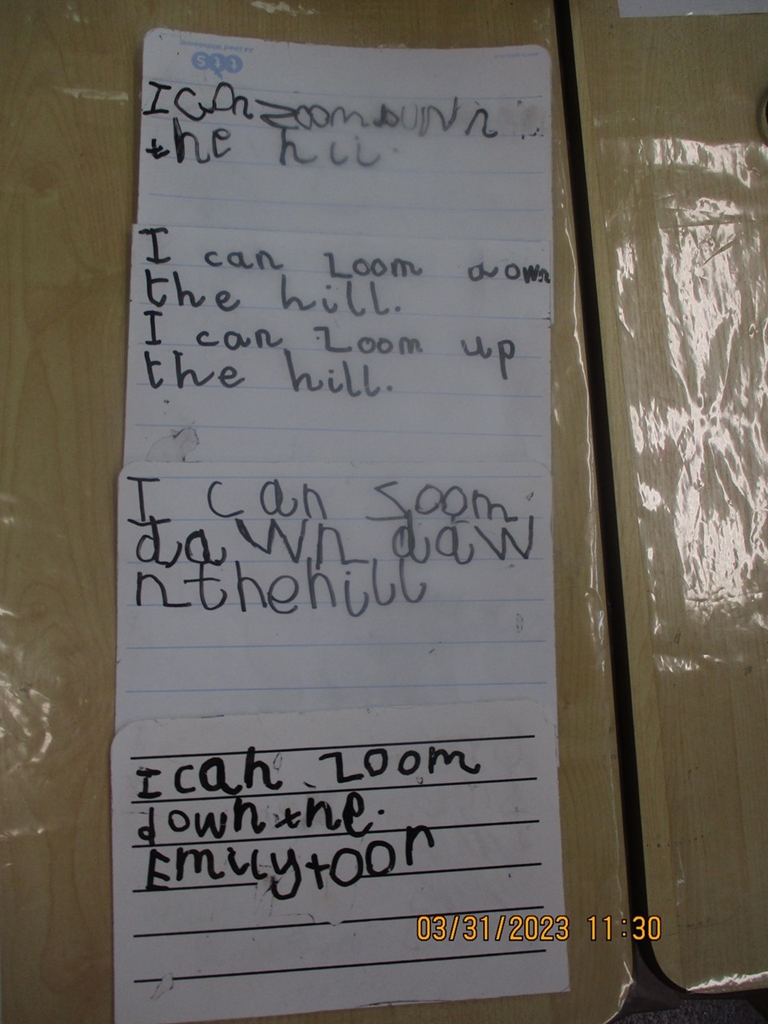 tts
I can zoom down
the hill.
I can zoom down
the hill.
I can zoom up
the hill.
I can zoom
dawn daw
nthehill
I can zoom
down the.
Emily toon
03/31/2023 11:30